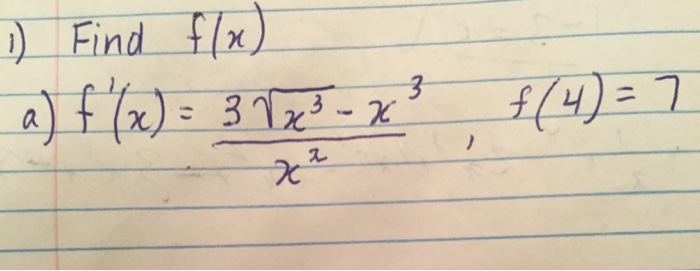 1) Find f(x)
a) f'(x) = 3√x³ - x³ / x² , f(4) = 7